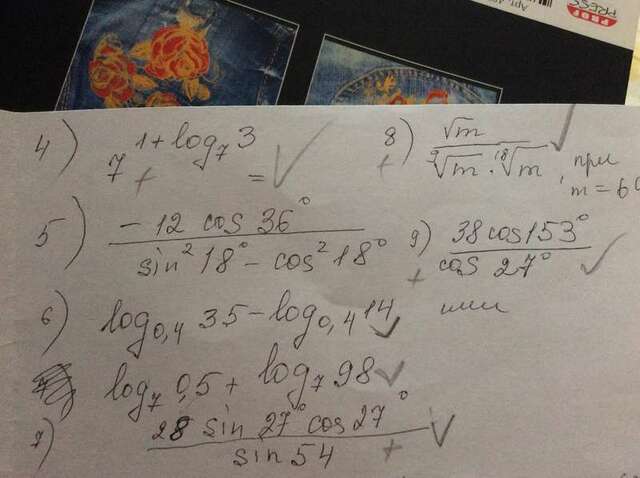 PROF
PRESS
4) 7^(1+log₇3) =
8) √m / (⁹√m · ¹⁸√m), при m = 60
5) -12 cos 36° / (sin²18° - cos²18°)
9) 38 cos 153° / cos 27°
6) log₀,₄ 35 - log₀,₄ 14
или
log₇ 0,5 + log₇ 98
7) 28 sin 27° cos 27° / sin 54